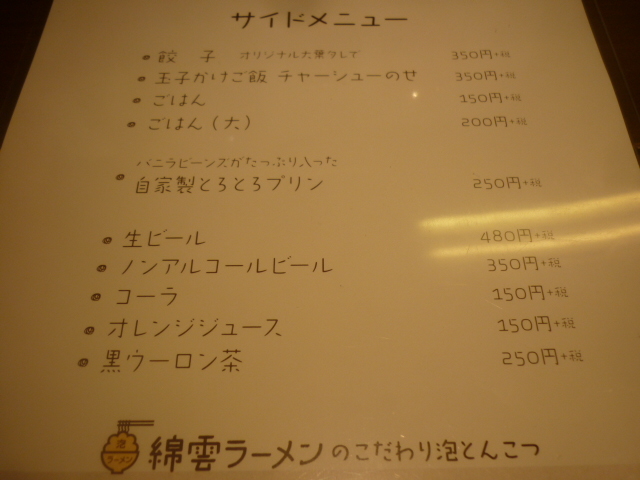 サイドメニュー
餃子 オリジナル大葉タレで 350円+税
玉子かけご飯 チャーシューのせ 350円+税
ごはん 150円+税
ごはん(大) 200円+税
バニラビーンズがたっぷり入った
自家製とろとろプリン 250円+税
生ビール 480円+税
ノンアルコールビール 350円+税
コーラ 150円+税
オレンジジュース 150円+税
黒ウーロン茶 250円+税
泡
ラーメン
綿雲ラーメンのこだわり泡とんこつ